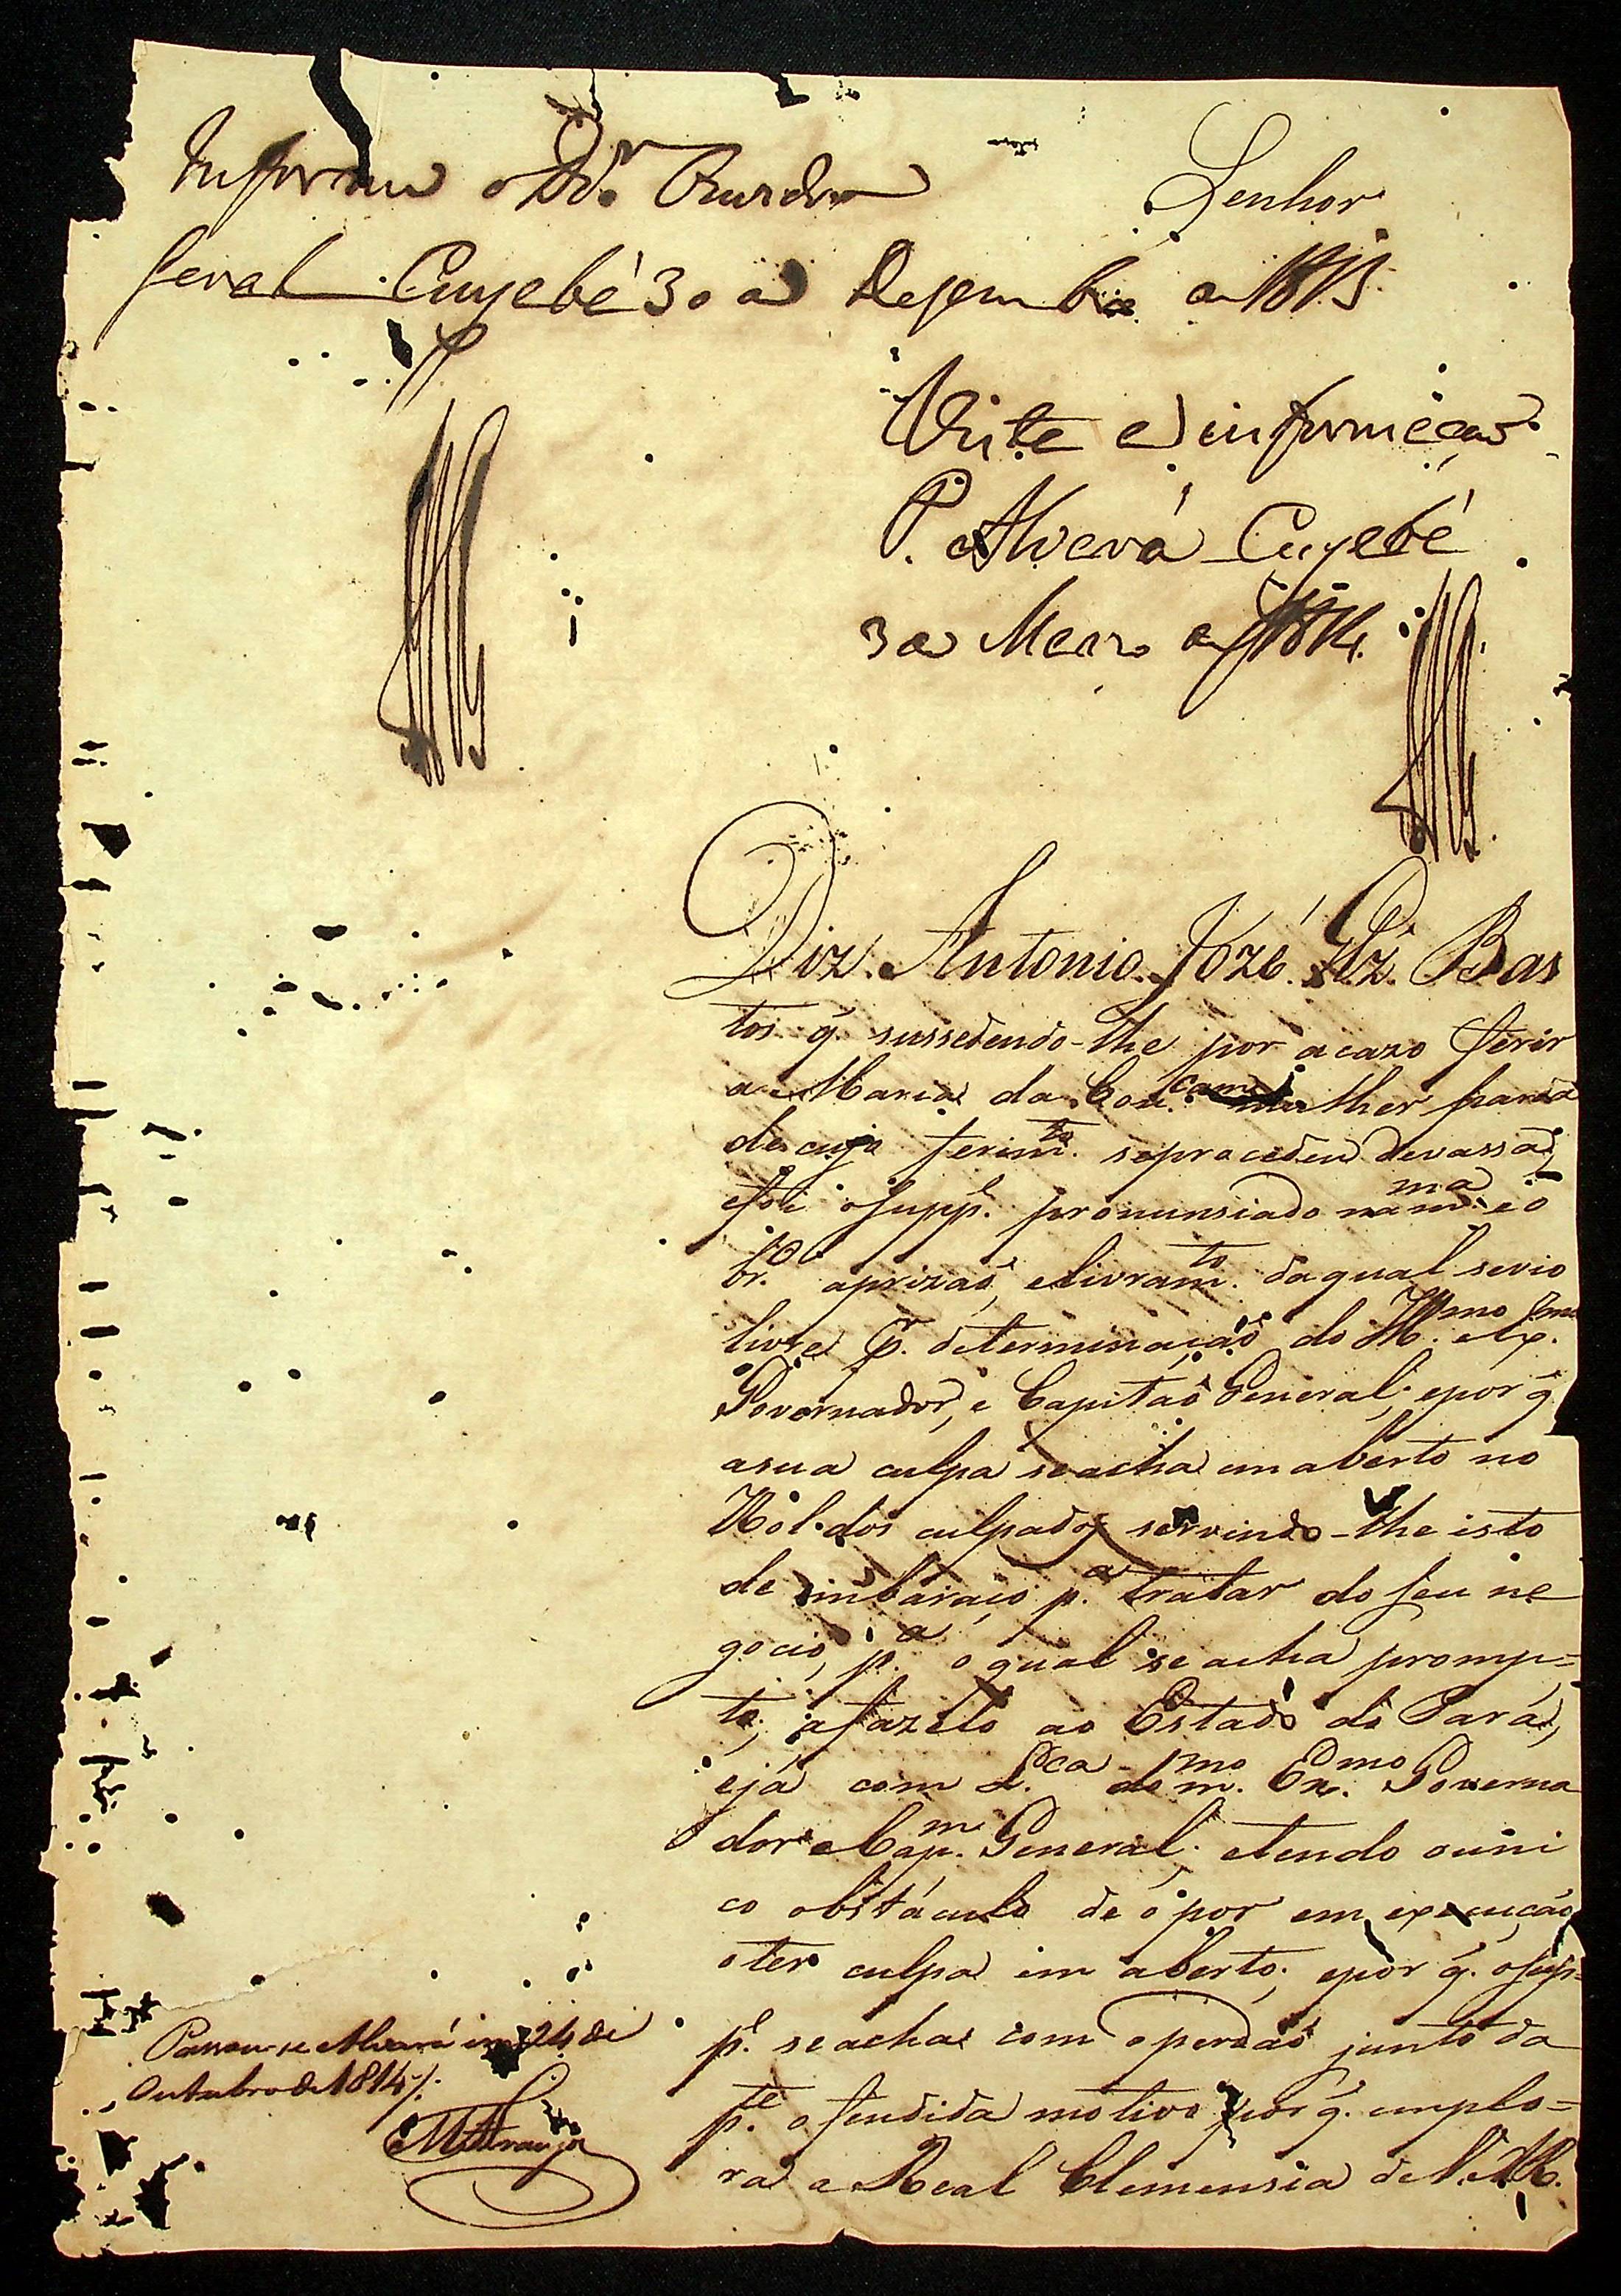 Informe o Dor. Ouvidor
Senhor
Geral Cuyabá 30 de Dezembro de 1813
Viste a informaçaõ
P. Alvará Cuyabá
3 de Março de 1814.
Diz Antonio Jozé Bas
tos q̃ sussedendo-lhe por acazo ferir
a Maria da Con.cam mulher parda
de cujo ferimto. seprocedeu devassa,
efoi osuppe. pronunsiado nama. e o
br.o aprizaõ, elivramto. daqual sevio
livre pr. determinaçaõ do Illmo. eExmo.
Governador, e Capitaõ General, epor q̃
asua culpa seacha em aberto no
Rol dos culpados servindo-lhe isto
de imbaraço pa. tratar do seu ne
gocio, pa. o qual se acha promp=
to, afazelo ao Estado do Pará,
ejá com L.ca do mmo. Exmo. Governa
dor e Capm. General. etendo ouni
co obstáculo de o por em execuçaõ
oter culpa em aberto, epor q̃. osup=
pe. seacha com operdaõ junto da
pte. ofendida motivo por q̃. emplo=
ra a Real Clemensia de V. A. R.
Passou-se Alvará em 24 de
Outubro de 1814